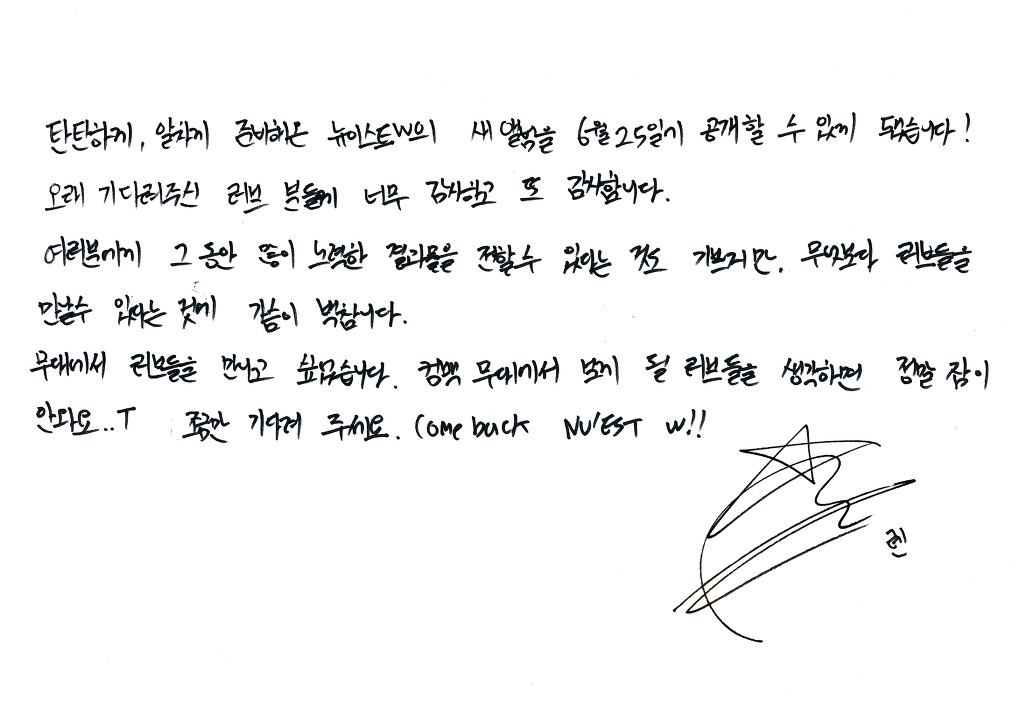 탄탄하게, 알차게 준비해온 뉴이스트W의 새 앨범을 6월 25일에 공개할 수 있게 됐습니다!
오래 기다려주신 러브 분들께 너무 감사하고 또 감사합니다.
여러분에게 그 동안 똘똘 노력한 결과물을 전할수 있다는 것도 기쁘지만, 무엇보다 러브들을
만날수 있다는 것에 가슴이 벅찹니다.
무대에서 러브들을 만나고 싶습니다. 컴백 무대에서 보게 될 러브들을 생각하면 정말 잠이
안와요..T 조금만 기다려 주세요. Come back NU'EST W!!
렌